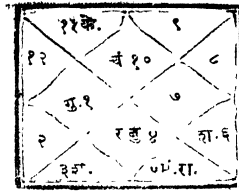 ११के. ९
१२ चं १० ८
गु.१ ७
२ र ४ श.६
३ ५मं.रा.